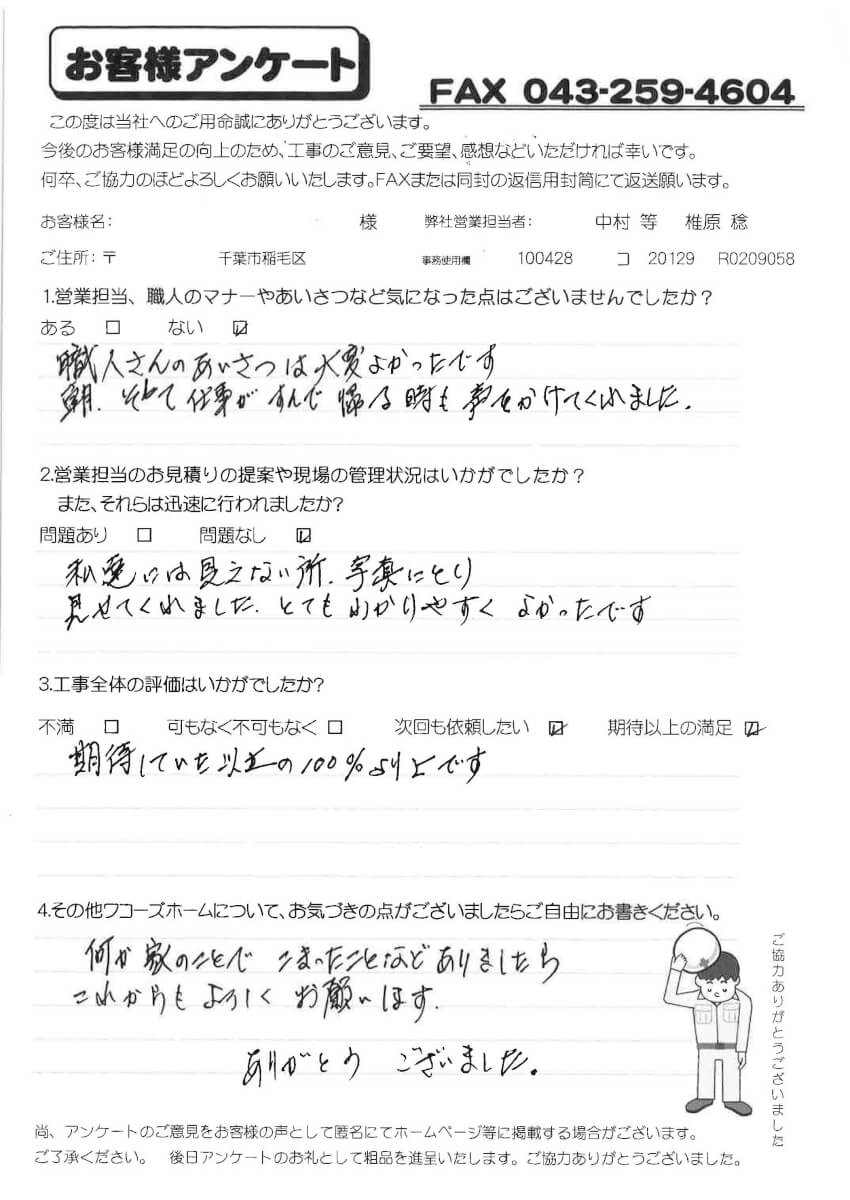 お客様アンケート
FAX 043-259-4604
この度は当社へのご用命誠にありがとうございます。
今後のお客様満足の向上のため、工事のご意見、ご要望、感想などいただければ幸いです。
何卒、ご協力のほどよろしくお願いいたします。FAXまたは同封の返信用封筒にて返送願います。
お客様名: 様 弊社営業担当者: 中村 等 椎原 稔
ご住所:〒 千葉市稲毛区 事務使用欄 100428 コ 20129 R0209058
1.営業担当、職人のマナーやあいさつなど気になった点はございませんでしたか?
ある □ ない ☑
職人さんのあいさつは大変よかったです
朝、そして仕事がすんで帰る時も声をかけてくれました。
2.営業担当のお見積りの提案や現場の管理状況はいかがでしたか?
また、それらは迅速に行われましたか?
問題あり □ 問題なし ☑
私達には見えない所、写真にとり
見せてくれました。とてもわかりやすく よかったです
3.工事全体の評価はいかがでしたか?
不満 □ 可もなく不可もなく □ 次回も依頼したい ☑ 期待以上の満足 ☑
期待していた以上の100%より上です
4.その他ワコーズホームについて、お気づきの点がございましたらご自由にお書きください。
何か家のことで こまったことなどありましたら
これからもよろしくお願います.
ありがとう ございました。
ご協力ありがとうございました
尚、アンケートのご意見をお客様の声として匿名にてホームページ等に掲載する場合がございます。
ご了承ください。 後日アンケートのお礼として粗品を進呈いたします。ご協力ありがとうございました。